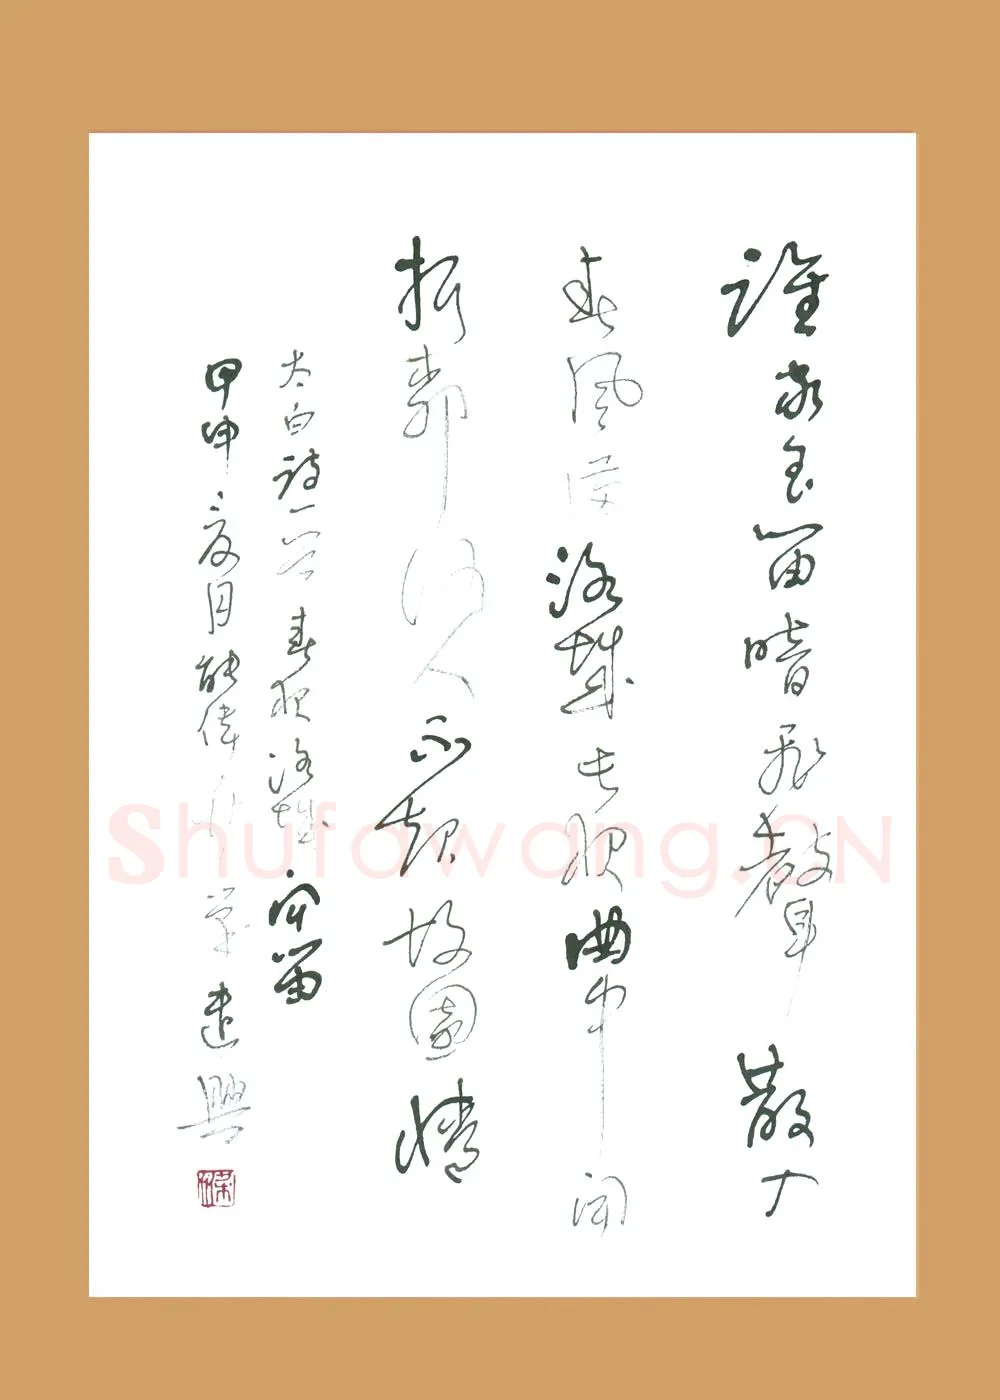 誰家玉笛暗飛聲散入
春風滿洛城此夜曲中聞
折柳何人不起故園情
太白詩一首春夜洛城聞笛
甲申夏月偉遣興
Shufawang.CN